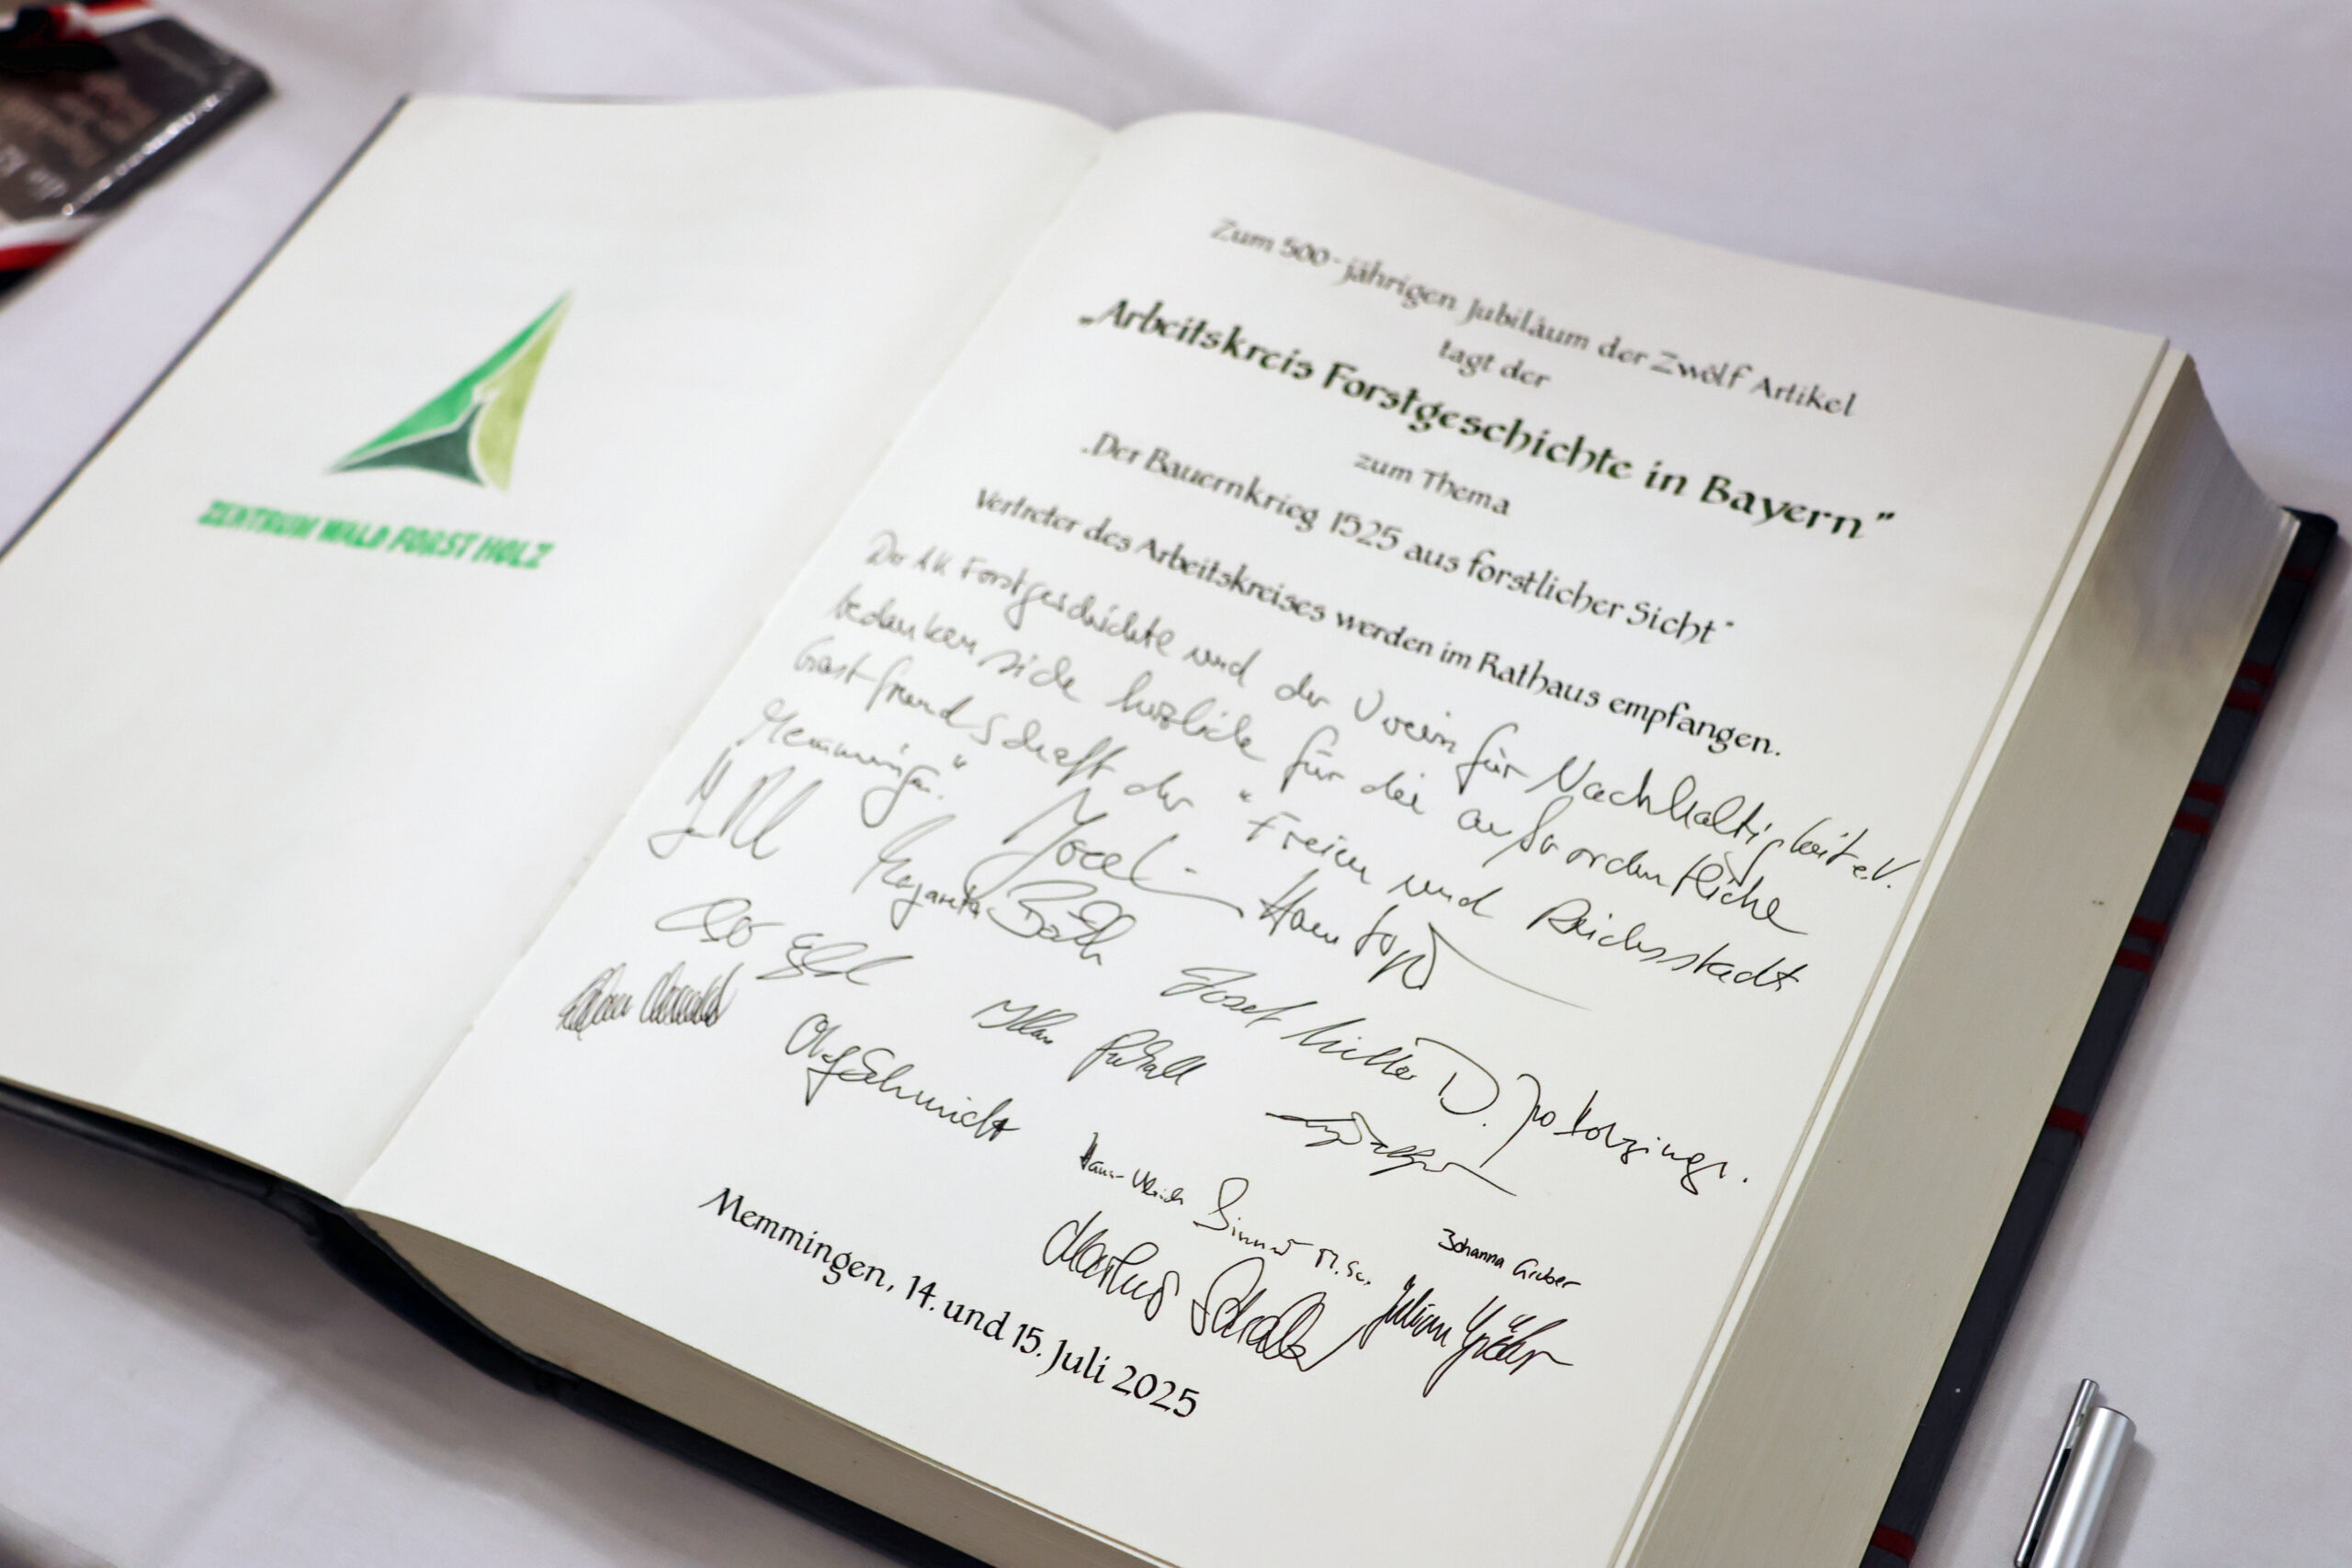 ZENTRUM WALD FORST HOLZ
Zum 500-jährigen Jubiläum der Zwölf Artikel
tagt der
„Arbeitskreis Forstgeschichte in Bayern”
zum Thema
„Der Bauernkrieg 1525 aus forstlicher Sicht”
Vertreter des Arbeitskreises werden im Rathaus empfangen.
Der AK Forstgeschichte und der Verein für Nachhaltigkeit e.V.
bedanken sich herzlich für die außerordentliche
Gastfreundschaft der "Freien und Reichsstadt
Memmingen."
Margareta
Josef Miller
Olaf Schmidt
Hans-Ulrich Sinner M.Sc.
Johanna Gruber
Markus Schaller
Julian
Memmingen, 14. und 15. Juli 2025